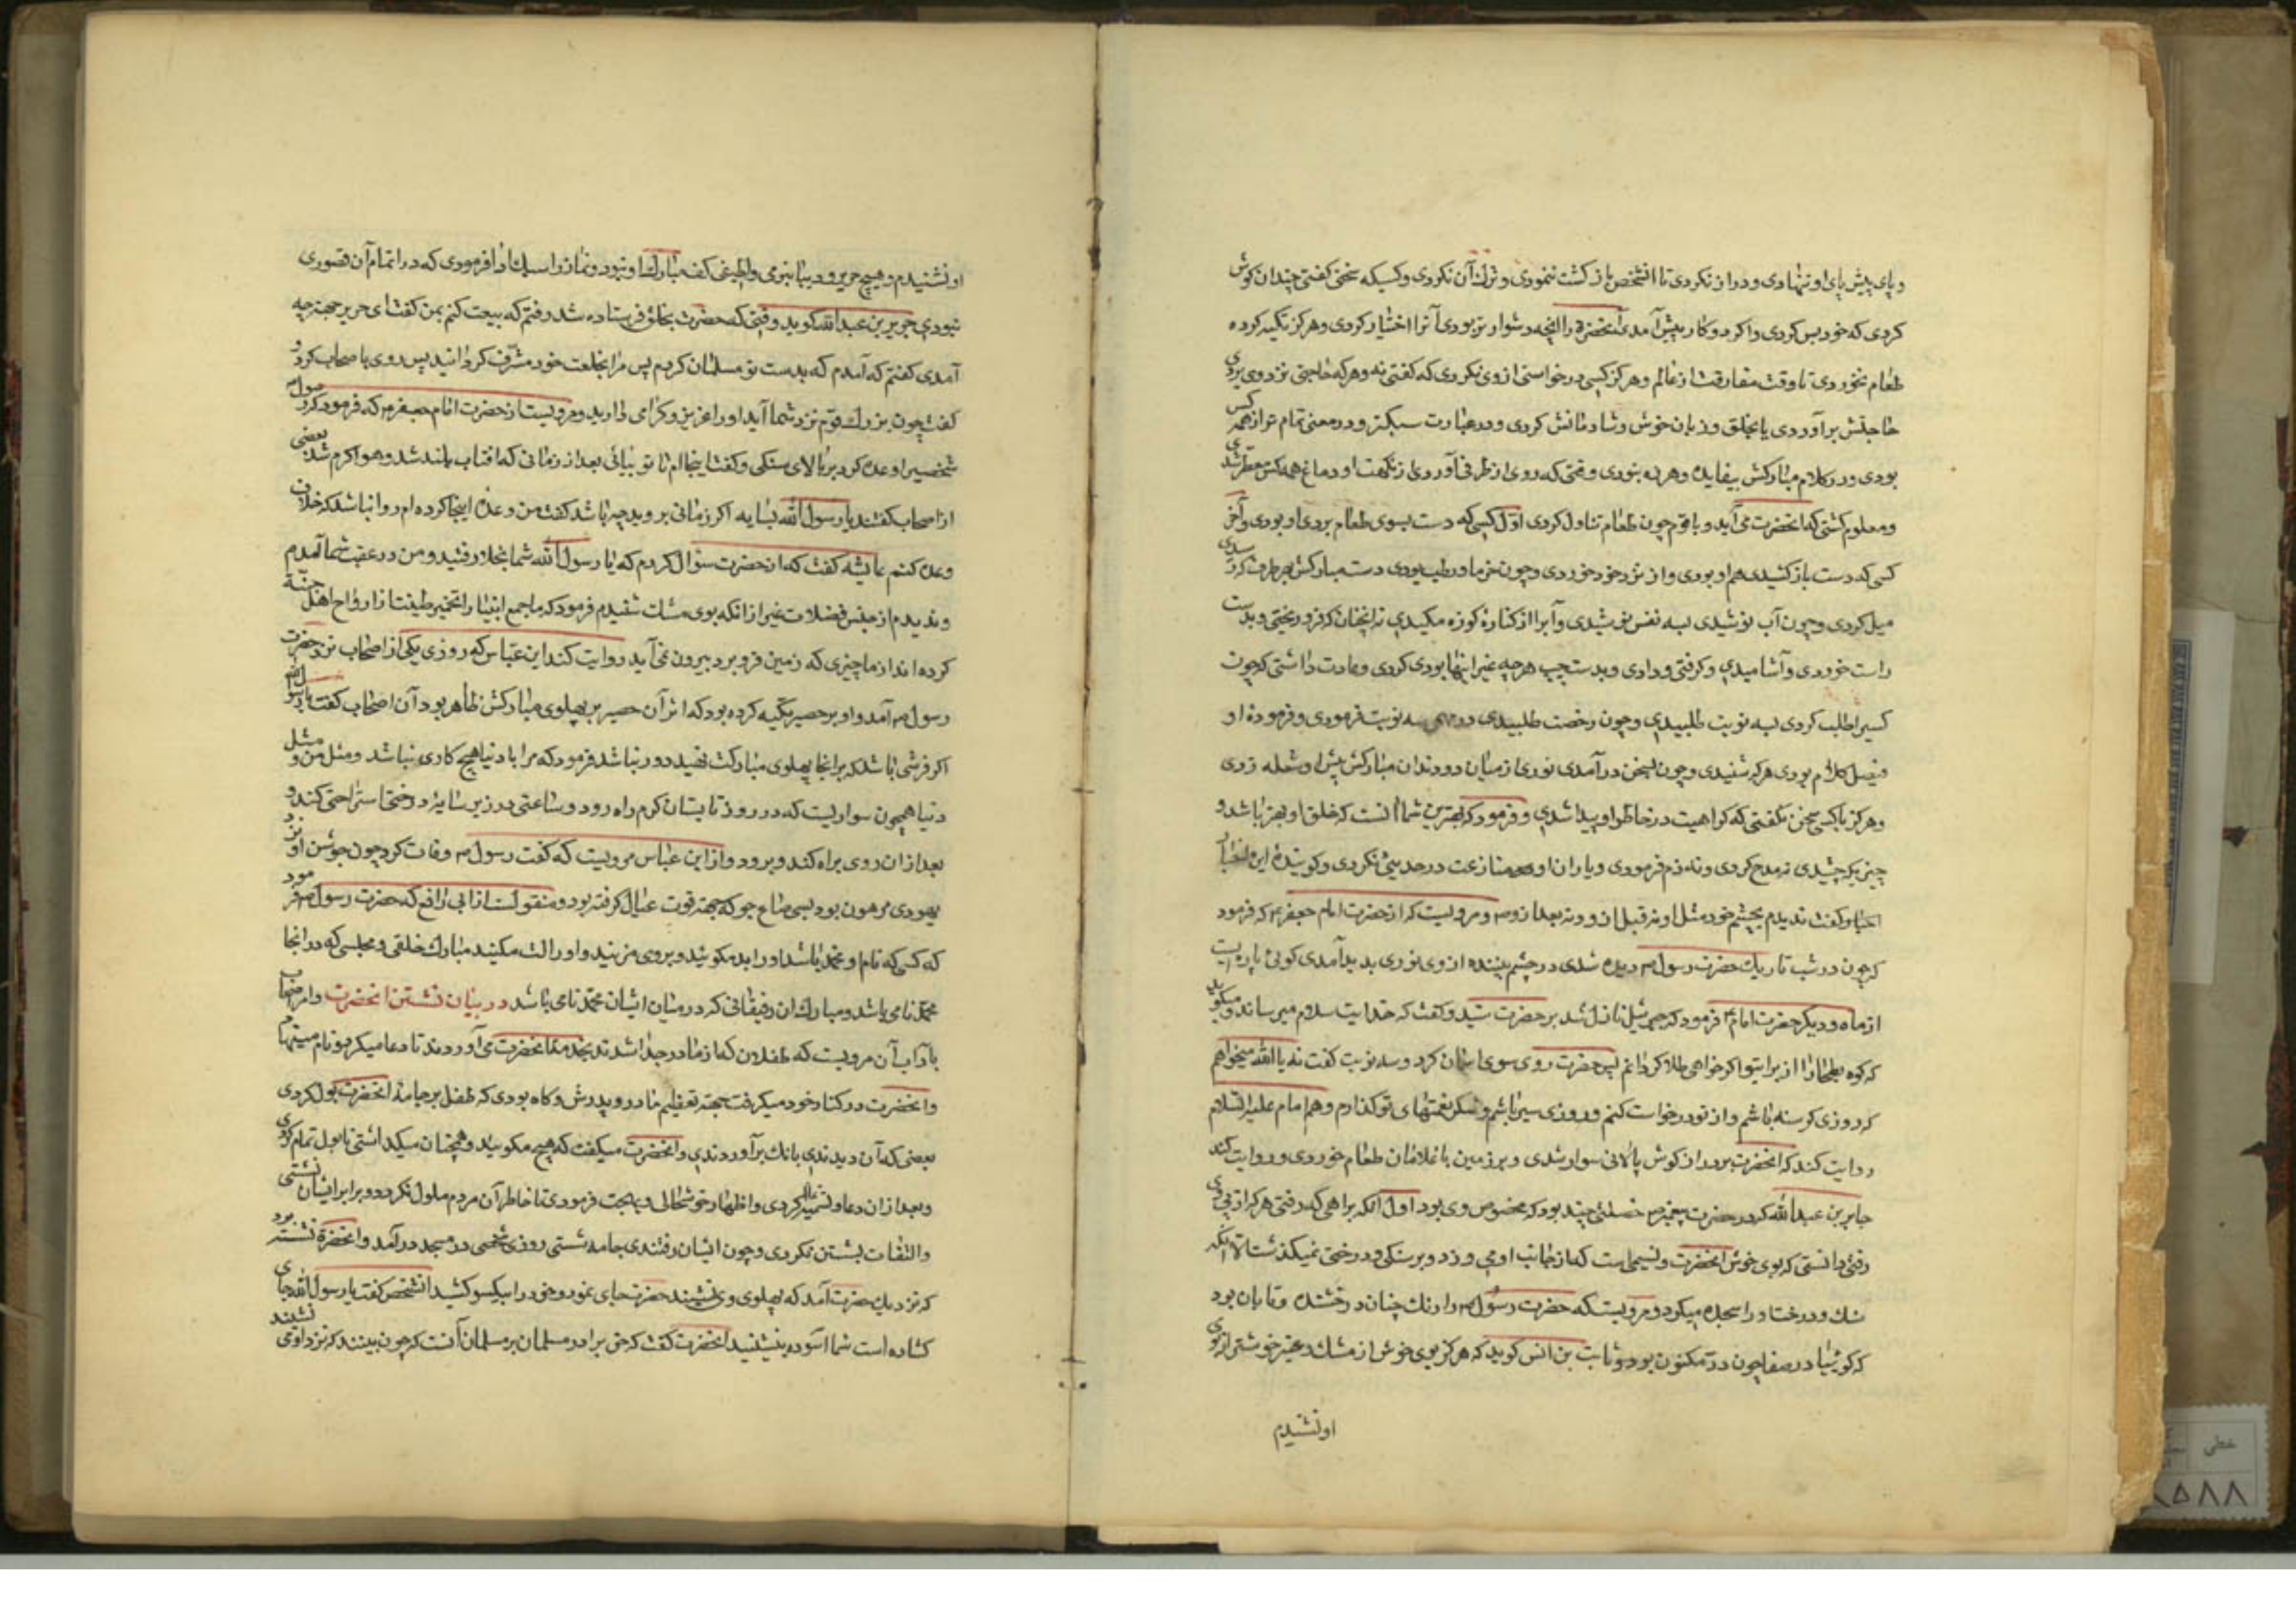 و پای پیش پای او ننهادی و دراز نکردی تا آنشخص باز گشت ننمودی و ترک آن نکردی و کسیکه سخن گفتی چندان گوش
کردی که خود بس کردی واگر دو کار پیش آمدی آنحضرة را آنچه دشوارتر بودی آنرا اختیار کردی و هرگز تکیه کرده
طعام نخوردی تا وقت مفارقت از عالم و هرگز کسی درخواستی از وی نکردی که گفتی نه و هرکه حاجتی نزد وی بردی
حاجتش برآوردی یا بخلق و زبان خوش و شادمانش کردی و در عبارت سبکتر و در معنی تمام تر از همه کس
بودی و در کلام مبارکش بیفایده و هرزه نبودی و قتی که روی از طرفی آوردی از نکهت او دماغ همه کس معطر شدی
و معلوم گشتی که انحضرت می آید و با قوم چون طعام تناول کردی اوّل کسی که دست بسوی طعام بردی او بودی و آخر
کسی که دست باز کشیدی هم او بودی و از نزد خود خوردی و چون خرما و رطب بودی دست مبارکش بهر طرف که رسیدی
میل کردی و چون آب نوشیدی بسه نفس نوشیدی و آبرا از کناره کوزه مکیدی نه انچنان که فرو ریختی و بدست
راست خوردی و آشامیدی و گرفتی و دادی و بدست چپ هرچه غیر اینها بودی کردی و عادت داشتی که چون
کسیرا طلب کردی بسه نوبت طلبیدی و چون رخصت طلبیدی در سه نوبت فرمودی و فرموده او
فیصل کلام بودی هرکه شنیدی و چون بسخن درآمدی نوری از میان دو دندان مبارکش پیش او شعله زدی
و هرگز با کسی سخن نگفتی که کراهیت در خاطر او پیدا شدی و فرمود که بهترین شما انست که خلق او بهتر باشد و
چیزیکه چشیدی نه مدح کردی و نه ذم فرمودی و یاران او منازعت در حدیثی نکردی و گوینده این
اخبار گفت ندیدم بچشم خود مثل او نه قبل از و و نه بعد از و م و مرویست که از حضرت امام جعفر ع که فرمود
که چون در شب تاریک حضرت رسول ص دیده شدی در چشم بیننده از وی نوری بدید آمدی گوئی پاره ایست
از ماه و دیگر حضرت امام ع فرمود که جبرئیل نازل شد بر حضرت سید و گفت که خدایت سلام میرساند و میگوید
که کوه بطحا را از برای تو اگر خواهی طلا گردانم پس حضرت روی سوی اسمان کرد و سه نوبت گفت نه یا الله میخواهم
که روزی گرسنه باشم و از تو درخواست کنم و روزی سیر باشم و شکر نعمتهای تو گذارم و هم امام علیه السلام
روایت کند که انحضرت بر دراز گوش پالانی سوار شدی و بر زمین با غلامان طعام خوردی و روایت کند
جابر بن عبد الله که در حضرت پیغمبر ص خصلتی چند بود که مخصوص وی بود اول انکه براهی که رفتی هرکه از پی وی
رفتی دانستی که بوی خوش انحضرت و نسیمی است که از جانب او می وزد و بر سنگی و درختی نمیگذشت الا انکه
سنک و درخت او را سجده میکرد و مرویست که حضرت رسول ص را رنک چنان درخشنده و تابان بود
که گوئیا در صفا چون درّ مکنون بود و ثابت بن انس گوید که هرگز بوی خوش از مشک و عنبر خوشتر از بوی
او نشنیدم
او نشنیدم و هیچ حریر و دیبا بنرمی و لطیفی کف مبارک او نبود و نماز را سبک ادا فرمودی که در اتمام آن قصوری
نبودی جریر بن عبد الله گوید وقتی که حضرت بخلق فرستاده شد رفتم که بیعت کنم بمن گفت ای جریر جهت چه
آمدی گفتم که آمدم که بدست تو مسلمان گردم پس مرا بخلعت خود مشرّف گردانید پس روی باصحاب کرد و
گفت چون بزرک قوم نزد شما آید او را عزیز و گرامی دارید و مرویست از حضرت امام جعفر ع که فرمود که رسول ص
شخصیرا وعده کرد بر بالای سنگی و گفت اینجاام تا تو بیائی بعد از زمانی که افتاب بلند شد و هوا گرم شد بعضی
از اصحاب گفتند یا رسول الله بسایه اگر زمانی بروید چه باشد گفت من وعده اینجا کرده ام روا نباشد که خلاف
وعده کنم عایشه گفت که از حضرت سؤال کردم که یا رسول الله شما بخلا رفتید و من در عقب شما آمدم
و ندیدم از جنس فضلات غیر از انکه بوی مشک شنیدم فرمود که ما جمع انبیا را تخمیر طینت از ارواح اهل جنّة
کرده اند از ما چیزی که زمین فرو برد بیرون نمی آید روایت کند ابن عبّاس که روزی یکی از اصحاب نزد حضرت
رسول ص آمد و او بر حصیر تکیه کرده بود که اثر آن حصیر بر پهلوی مبارکش ظاهر بود آن اصحاب گفت یا رسول الله
اگر فرشی باشد که برانجا پهلوی مبارکت نهید دور نباشد فرمود که مرا با دنیا هیچ کاری نباشد و مثل من و مثل
دنیا همچون سواریست که در روز تابستان گرم راه رود و ساعتی در زیر سایه درختی استراحتی کند و
بعد از ان روی براه کند و برود و از ابن عباس مرویست که گفت رسول ص وفات کرد چون جوشن او نزد
یهودی مرهون بود بسی صاع جو که جهت قوت عیال گرفته بود و منقولست از ابی رافع که حضرت رسول ص فرمود
که کسی که نام او محمد باشد او را بد مگوئید و بر وی مزنید و او را لت مکنید مبارک خلقی و مجلسی که در انجا
محمّد نامی باشد و مبارک ان رفیقانی که در میان ایشان محمّد نامی باشد در بیان نشستن انحضرت و امر اصحاب
بآداب آن مرویست که طفلان که از مادر جدا شدند بخدمت انحضرت می آوردند تا دعا میکرد و نام مینهاد
و انحضرت در کنار خود میگرفت جهت تعظیم مادر و پدرش و گاه بودی که طفل بر جامهٔ انحضرت بول کردی
بعضی که آن دیدندی بانک برآوردندی و انحضرت میگفت که هیچ مگوئید و همچنان میگذاشتی تا بول تمام کردی
و بعد از ان دعا و تسمیه کردی و اظهار خوشحالی و بهجت فرمودی تا خاطر آن مردم ملول نگردد و برابر ایشان نشستی
و التفات بشستن نکردی و چون ایشان رفتندی جامه شستی روزی شخصی در مسجد درآمد و انحضرة نشسته بود
که نزدیک حضرت آمد که پهلوی وی نشیند حضرت جای نمود و خود را بیکسو کشید انشخص گفت یا رسول الله جای
گشاده است شما آسوده بنشینید انحضرت گفت که حق برادر مسلمان بر مسلمان آنست که چون بینند که نزد او می نشیند
خطی
۸۵۸۸